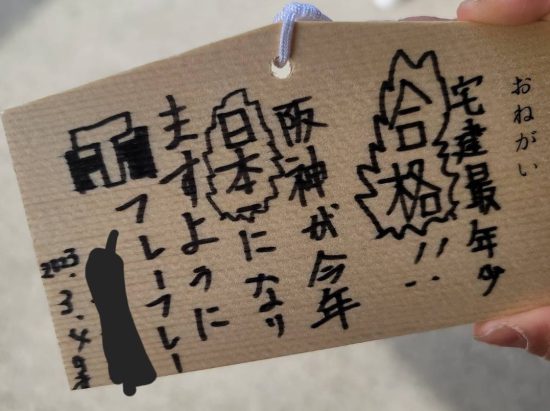 おねがい
宅建最年少
合格!!
阪神が今年
日本一になり
ますように
フレーフレー
2023.3.4